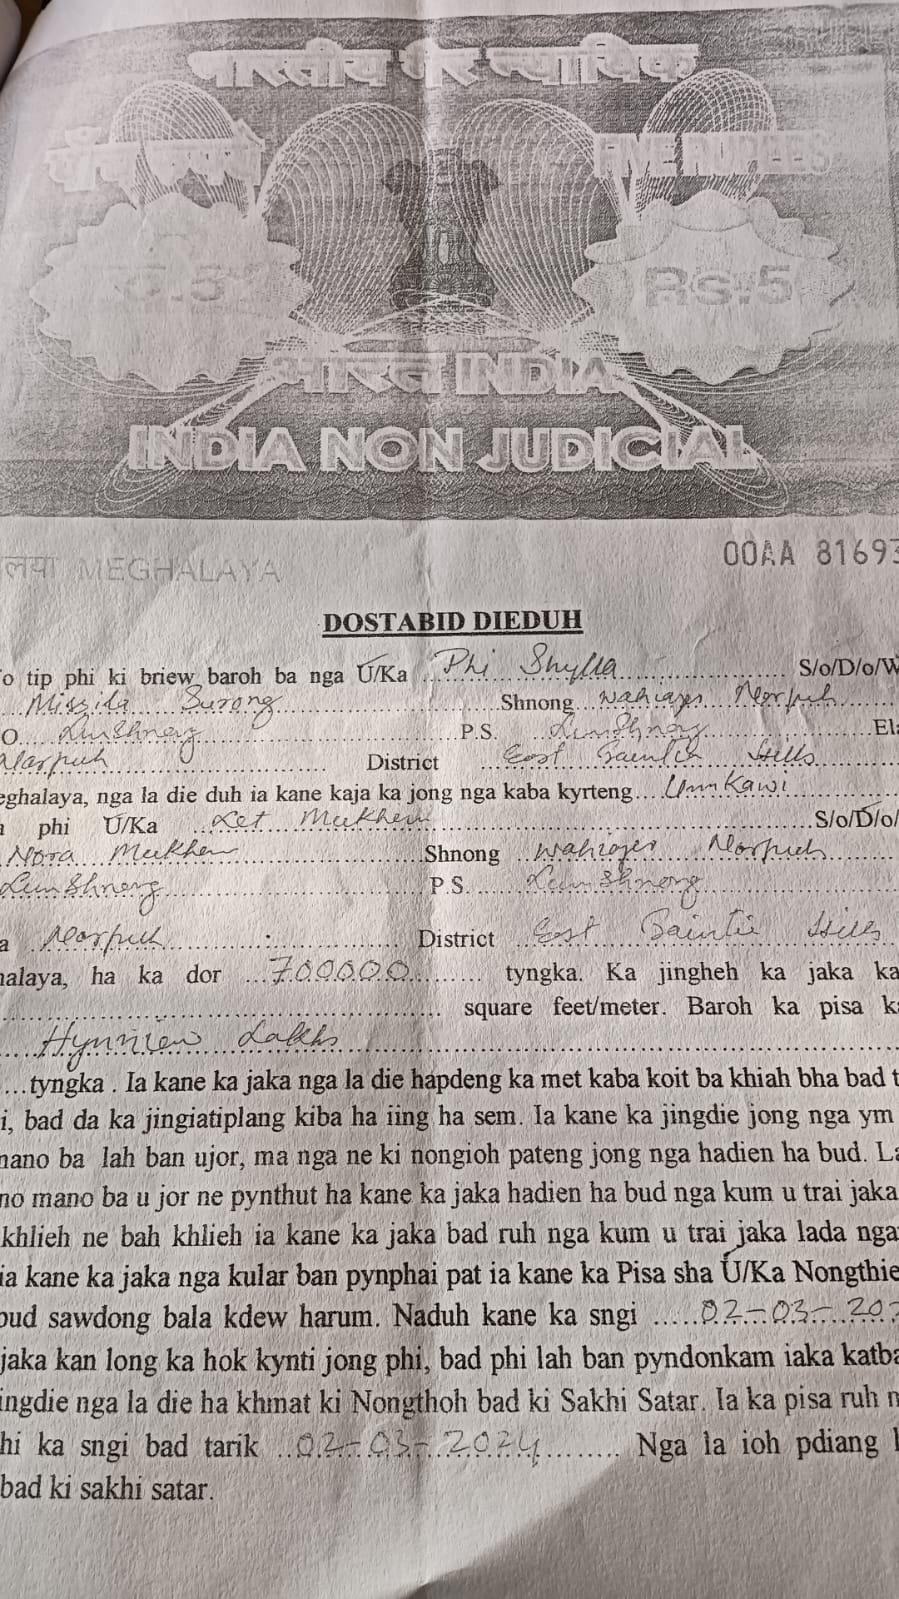 भारतीय गैर न्यायिक
पाँच रुपये FIVE RUPEES
रु.5 Rs.5
भारत INDIA
INDIA NON JUDICIAL
लया MEGHALAYA 00AA 81693
DOSTABID DIEDUH
o tip phi ki briew baroh ba nga U/Ka Phi Shylla S/o/D/o/W
Missida Surong Shnong Wahiajer Narpuh
O. Lumshnong P.S. Lumshnong Ela
Narpuh District East Jaintia Hills
eghalaya, nga la die duh ia kane kaja ka jong nga kaba kyrteng Umkawi
phi U/Ka Let Mukhem S/o/D/o/
Nora Mukhem Shnong Wahiajer Narpuh
Lumshnong P S. Lumshnong
a Narpuh District East Jaintia Hills
halaya, ha ka dor 700000 tyngka. Ka jingheh ka jaka ka
square feet/meter. Baroh ka pisa k
Hynniew Lakhs
tyngka . Ia kane ka jaka nga la die hapdeng ka met kaba koit ba khiah bha bad t
i, bad da ka jingiatiplang kiba ha iing ha sem. Ia kane ka jingdie jong nga ym
mano ba lah ban ujor, ma nga ne ki nongioh pateng jong nga hadien ha bud. La
no mano ba u jor ne pynthut ha kane ka jaka hadien ha bud nga kum u trai jaka
khlieh ne bah khlieh ia kane ka jaka bad ruh nga kum u trai jaka lada nga
ia kane ka jaka nga kular ban pynphai pat ia kane ka Pisa sha U/Ka Nongthie
pud sawdong bala kdew harum. Naduh kane ka sngi 02-03-202
jaka kan long ka hok kynti jong phi, bad phi lah ban pyndonkam iaka katba
ingdie nga la die ha khmat ki Nongthoh bad ki Sakhi Satar. Ia ka pisa ruh n
hi ka sngi bad tarik 02-03-2024 Nga la ioh pdiang
bad ki sakhi satar.